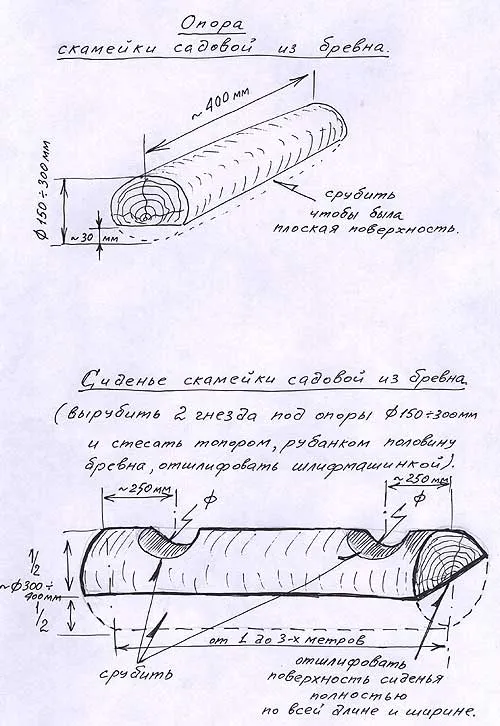 Опора
скамейки садовой из бревна.
~400 мм
ф 150÷300мм
~30 мм
срубить
чтобы была
плоская поверхность.
Сиденье скамейки садовой из бревна
(вырубить 2 гнезда под опоры ф150÷300мм
и стесать топором, рубанком половину
бревна, отшлифовать шлифмашинкой).
~250мм
ф
~250 мм
ф
1/2
~ф300÷
400мм
1/2
от 1 до 3-х метров
срубить
отшлифовать
поверхность сиденья
полностью
по всей длине и ширине.